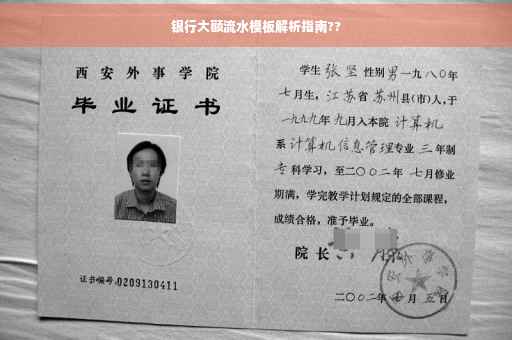 银行大额流水模板解析指南??
西安外事学院
毕业证书
证书编号:0209130411
学生 张坚 性别 男 一九八〇年
七月生, 江苏省 苏州 县(市)人, 于
一九九九年 九月入本院 计算机
系 计算机信息管理 专业 三 年制
专 科学习, 至二〇〇二年 七月修业
期满, 学完教学计划规定的全部课程,
成绩合格, 准予毕业。
院长
二〇〇二年 月五日